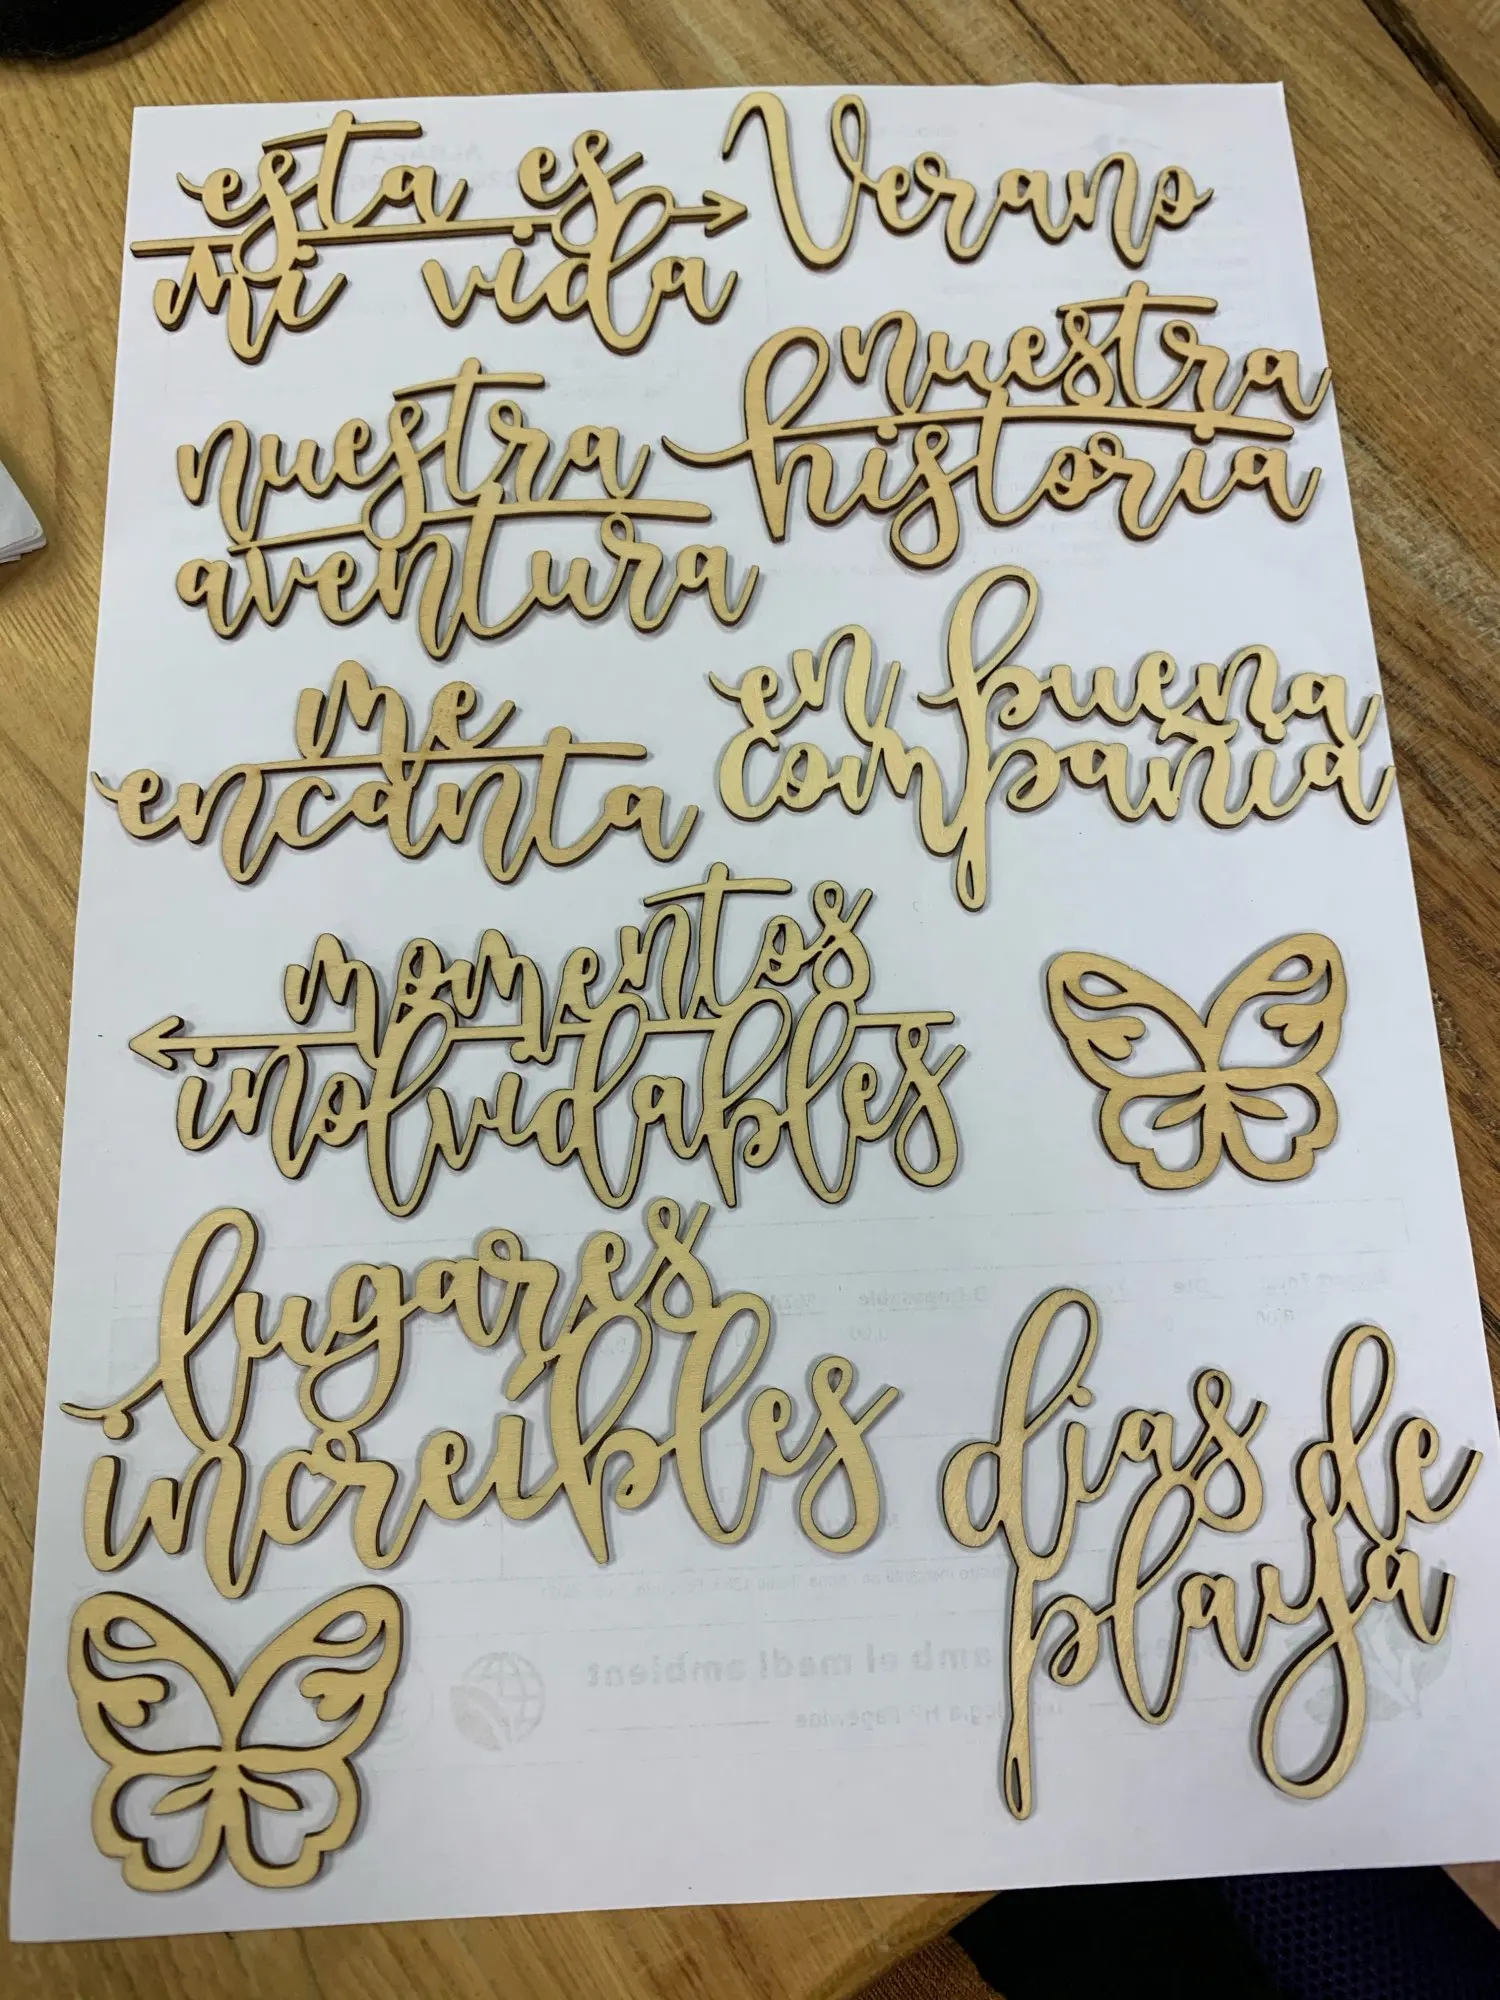 esta es
mi vida
Verano
nuestra
historia
nuestra
aventura
me
encanta
en buena
compañia
momentos
inolvidables
lugares
increíbles
dias de
playa
amb el medi ambient